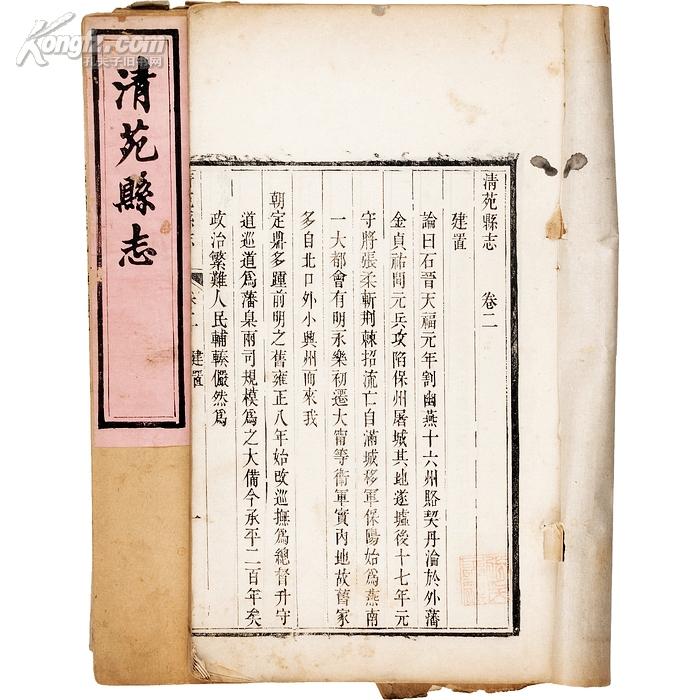 Kongfz.com
孔夫子旧书网
清苑縣志
清苑縣志　卷二
建置
論曰石晉天福元年割幽燕十六州賂契丹淪於外藩
金貞祐間元兵攻陷保州屠城其地遂墟後十七年元
守將張柔斬荆棘招流亡自滿城移軍保陽始爲燕南
一大都會有明永樂初遷大甯等衛軍實內地故舊家
多自北口外小興州而來我
朝定鼎多踵前明之舊雍正八年始改巡撫爲總督升守
道巡道爲藩臬兩司規模爲之大備今承平二百年矣
政治繁難人民輻輳儼然爲
建置
一